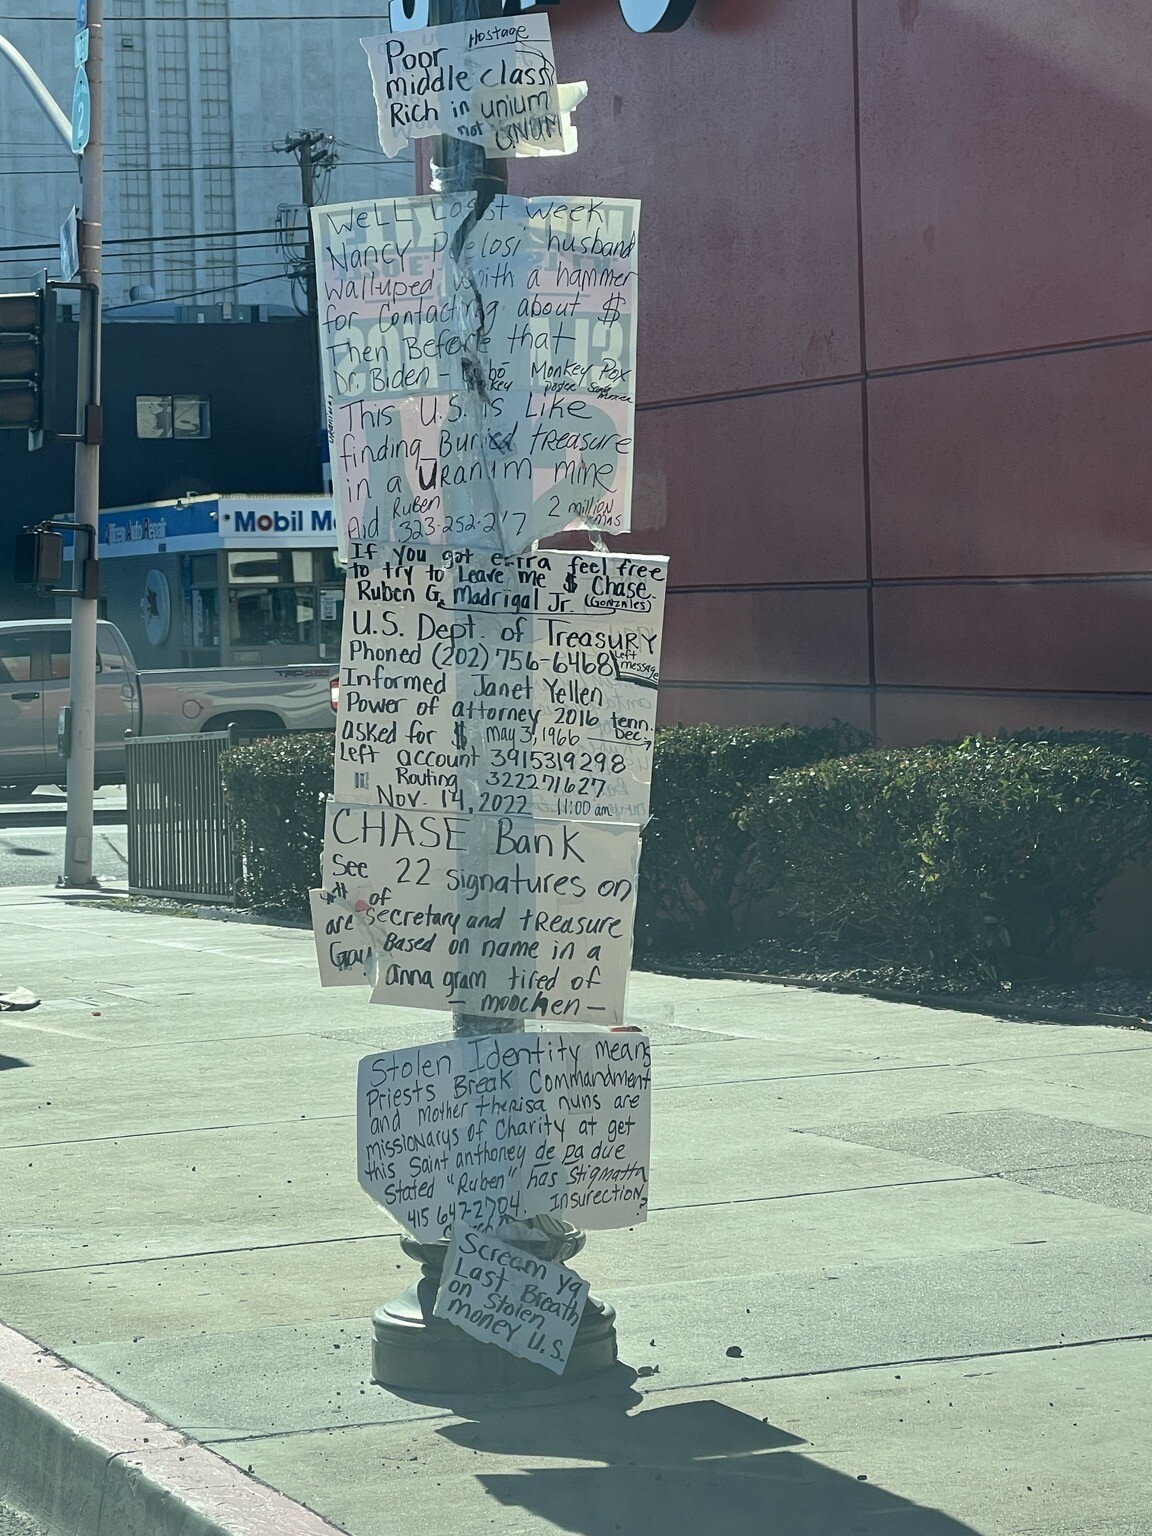 2
Hostage
Poor
middle class
Rich in unium
not UNUM
Well Last week
Nancy Pelosi husband
walluped with a hammer
for contacting about $
Then Before that
Dr. Biden - Monkey Pox
This U.S. is Like
finding Buried treasure
in a Uranium mine
Ruben 2 million
Aid 323-252-2 7
Mobil
If you got extra feel free
to try to Leave me $ Chase.
Ruben G. Madrigal Jr. (Gonzales)
U.S. Dept. of Treasury
Phoned (202) 756-6468 Left message
Informed Janet Yellen
Power of attorney 2016 tenn
asked for $ May 31, 1966 Dec.
Left account 3915319298
Routing 322271627
Nov. 14, 2022 11:00 am
CHASE Bank
See 22 signatures on
of
are Secretary and treasure
Based on name in a
anna gram tired of
- moochen -
Stolen Identity means
Priests Break Commandment
and Mother therisa nuns are
missionarys of Charity at get
this Saint anthoney de pa due
Stated "Ruben" has Stigmatta
415 647-2704. Insurection?
Scream Ya
Last Breath
on Stolen
money U.S.